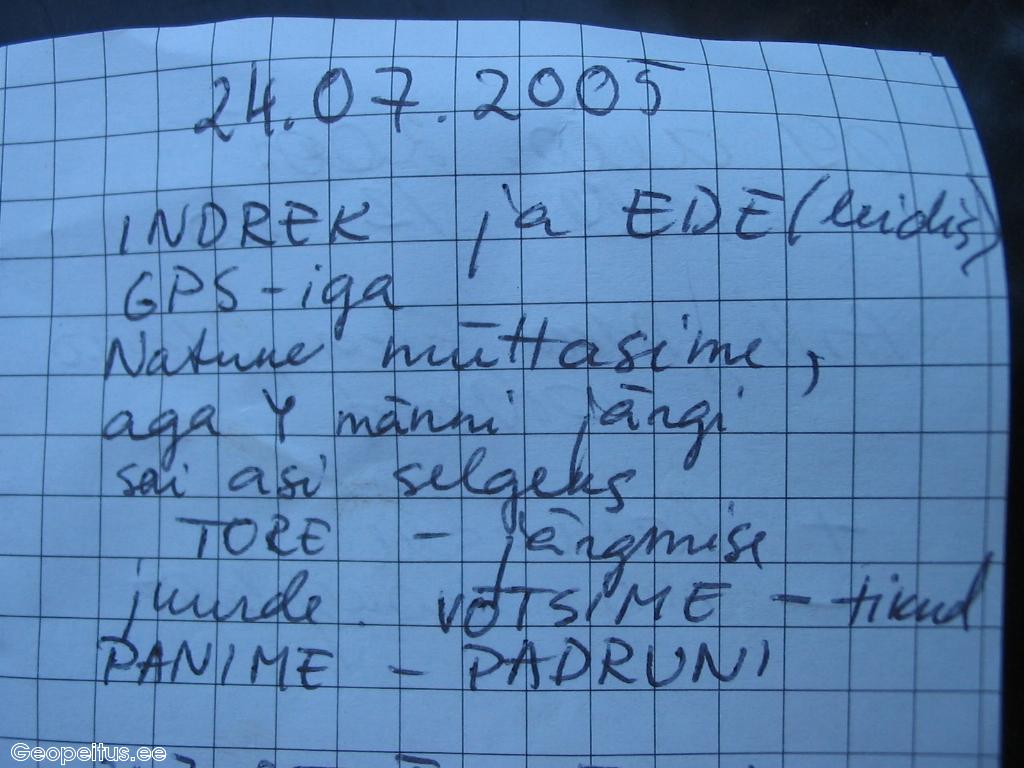 24.07.2005
INDREK ja EDE (leidis)
GPS-iga
Natuke müttasime,
aga Y männi järgi
sai asi selgeks
TORE - järgmise
juurde. VÕTSIME - tikud
PANIME - PADRUNI
Geopeitus.ee